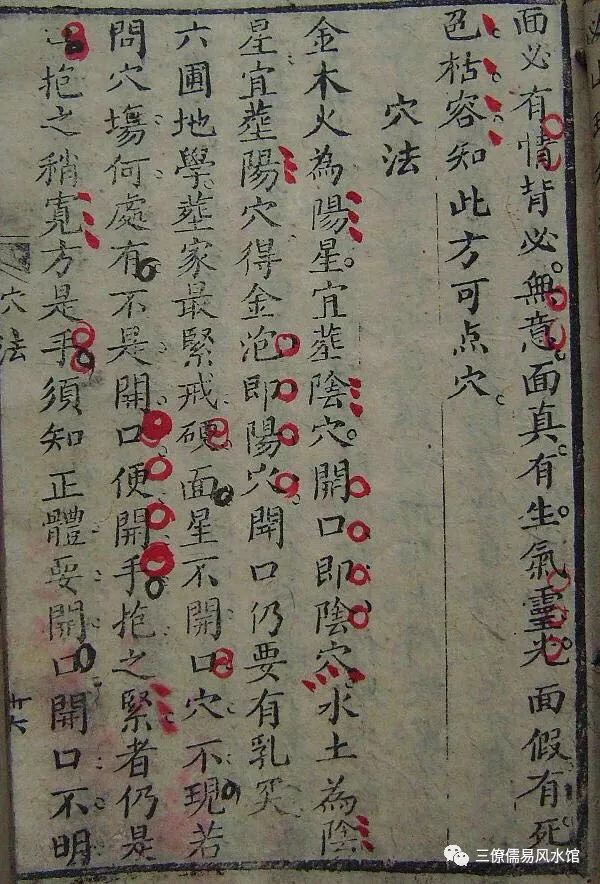 面必有情背必無意面真有生氣靈光面假有死
色枯容知此方可点穴
穴法
金木火為陽星宜塟陰穴開口即陰穴水土為陰
星宜塟陽穴得金泡即陽穴開口仍要有乳突
六圃地學塟家最緊戒硬面星不開口穴不現若
問穴塲何處有不是開口便開手抱之緊者仍是
抱之稍寬方是手須知正體要開口開口不明
穴法
廿六
三僚儒易风水馆